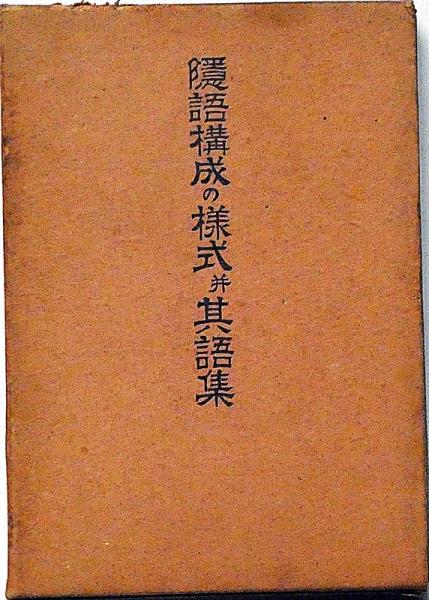 隱語構成の様式并其語集